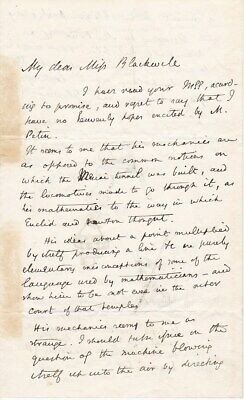 My dear Miss Blackwell
I have read your
to promise, and regret to say that I
have no heavenly hopes excited by M.
Petin.
It seems to me that his mechanics are
as opposed to the common notions on
which the tunnel was built, and
the locomotives made to go through it, as
his mathematics to the way in which
Euclid and Newton thought.
His idea about a point multiplied
by itself producing a line &c are purely
elementary misconceptions of some of the
language used by mathematicians — and
show him to be not even in the outer
court of that temple.
His mechanics seems to me as
strange. I should turn upon on the
question of the machine blowing
itself up into the air by directing